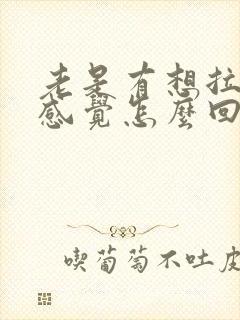 老是有想拉
感覺怎麼回
喫葡萄不吐皮